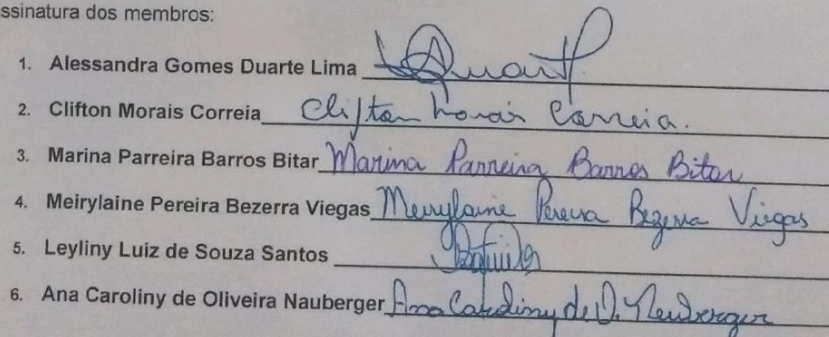 ssinatura dos membros:
1. Alessandra Gomes Duarte Lima Duart
2. Clifton Morais Correia Clifton Morais Correia.
3. Marina Parreira Barros Bitar Marina Parreira Barros Bitar
4. Meirylaine Pereira Bezerra Viegas Meirylaine Pereira Bezerra Viegas
5. Leyliny Luiz de Souza Santos
6. Ana Caroliny de Oliveira Nauberger Ana Caroliny de O. Neuberger